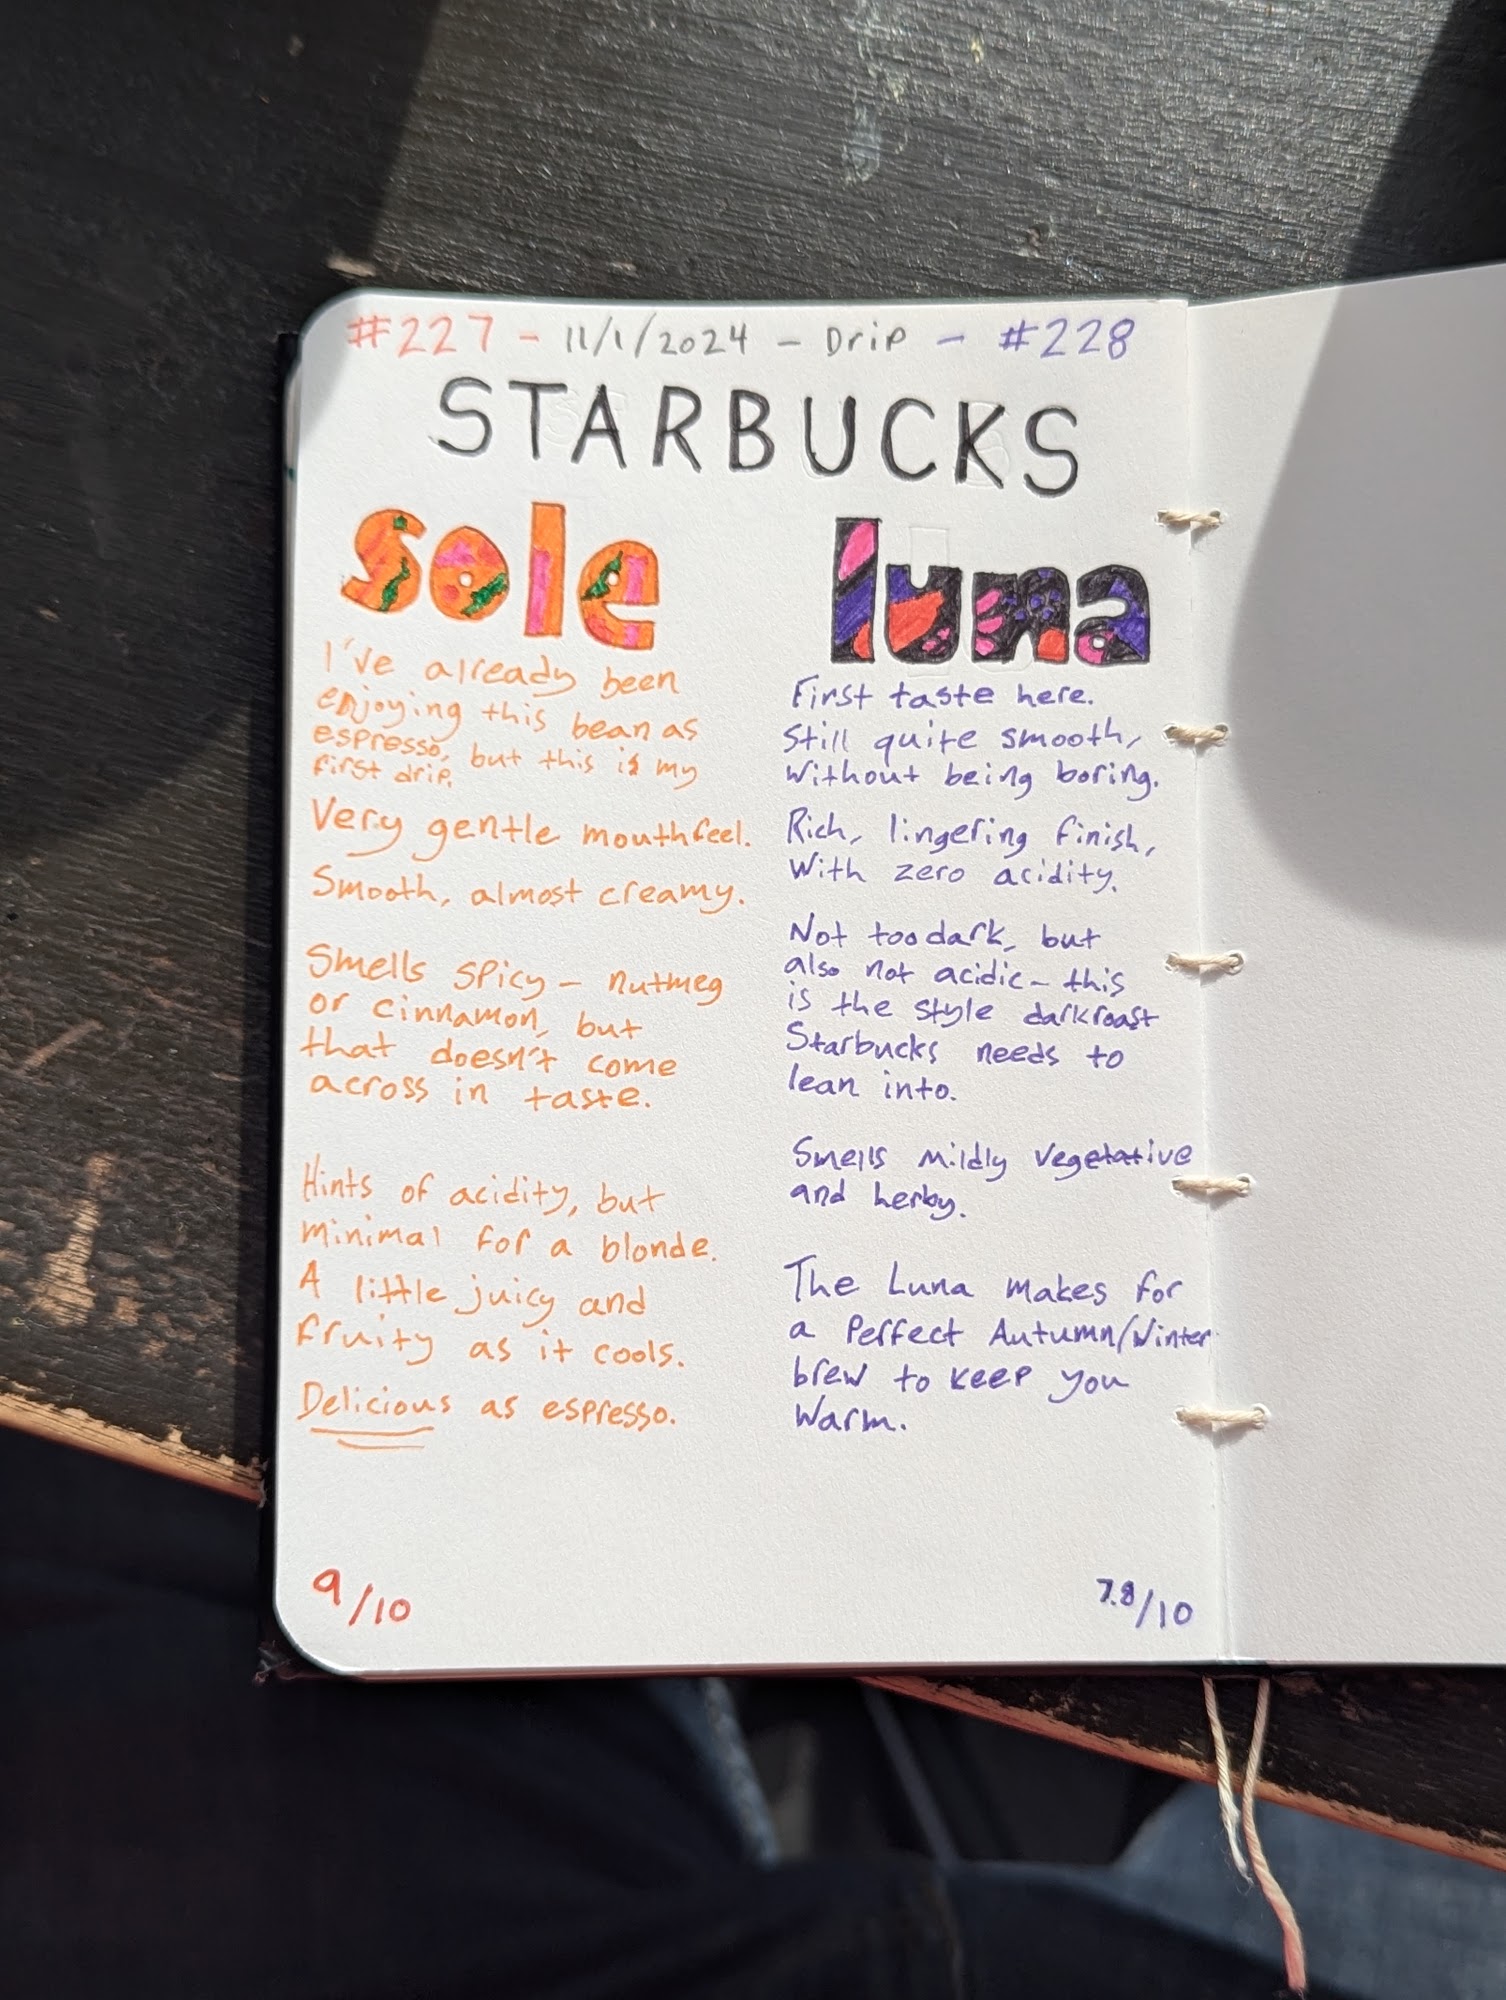 #227 - 11/1/2024 - Drip - #228
STARBUCKS
sole
I've already been
enjoying this bean as
espresso, but this is my
first drip.
Very gentle mouthfeel.
Smooth, almost creamy.
Smells spicy - nutmeg
or cinnamon, but
that doesn't come
across in taste.
Hints of acidity, but
minimal for a blonde.
A little juicy and
fruity as it cools.
Delicious as espresso.
9/10
luna
First taste here.
Still quite smooth,
without being boring.
Rich, lingering finish,
with zero acidity.
Not too dark, but
also not acidic - this
is the style darkroast
Starbucks needs to
lean into.
Smells mildly vegetative
and herby.
The Luna makes for
a perfect Autumn/Winter
brew to keep you
warm.
7.8/10